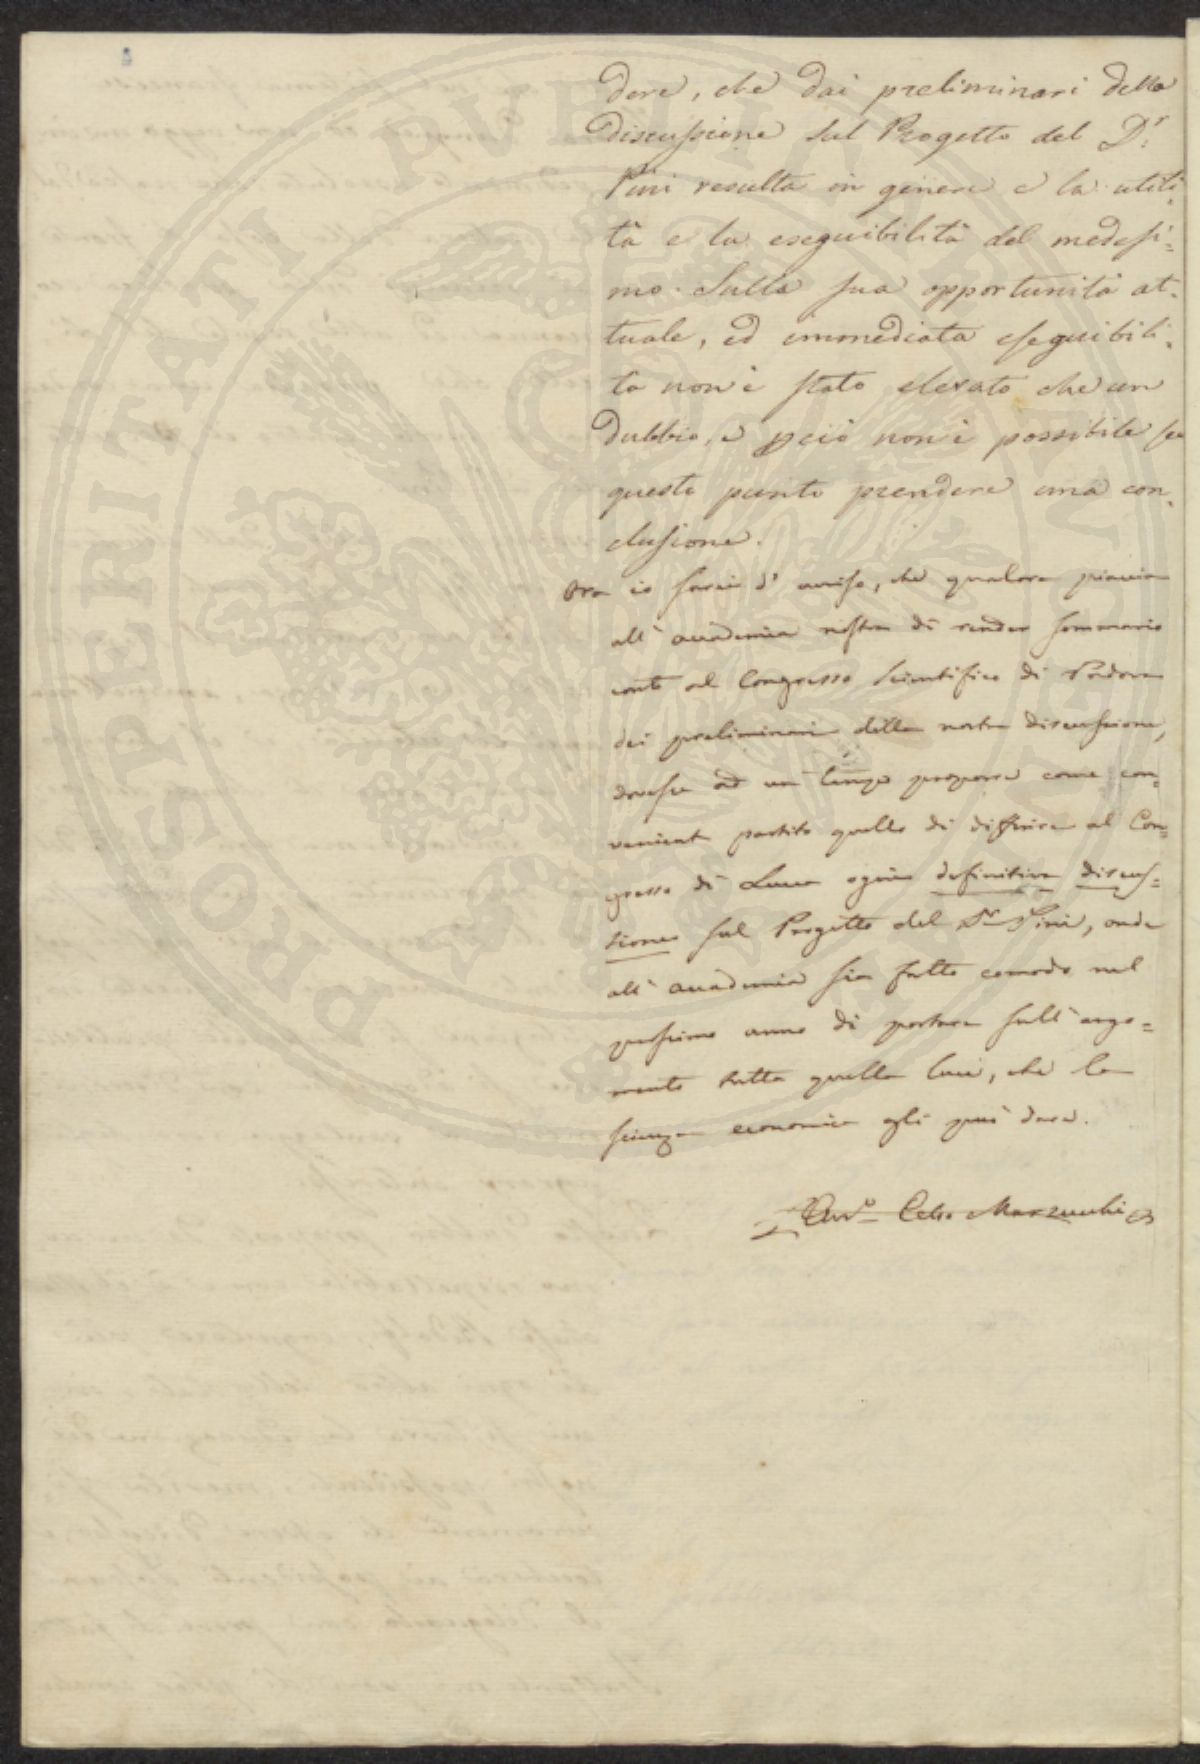 dere, che dai preliminari della
discussione sul Progetto del D.r
Pini resulta in genere e la utili-
tà e la eseguibilità del medesi=
mo. Sulla sua opportunità at-
tuale, ed immediata eseguibili-
ta non è stato elevato che un
dubbio, e pciò non è possibile su
questo punto prendere una con-
clusione.
Ora io sarei d'avviso, che qualora piaccia
all'accademia nostra di render sommario
conto al Congresso scientifico di Padova
dei preliminari della nostra discussione,
dovesse ad un tempo proporre come con-
veniente partito quello di differire al Con-
gresso di Lucca ogni definitiva discus=
sione sul Progetto del Dr Pini, onde
all'accademia sia fatto comodo nel
prossimo anno di portare sull'argo=
mento tutta quella luce, che la
scienza economica gli può dare.
Avv.o Celso Marzucchi
PROSPERITATI PVBLICAE AVGENDAE